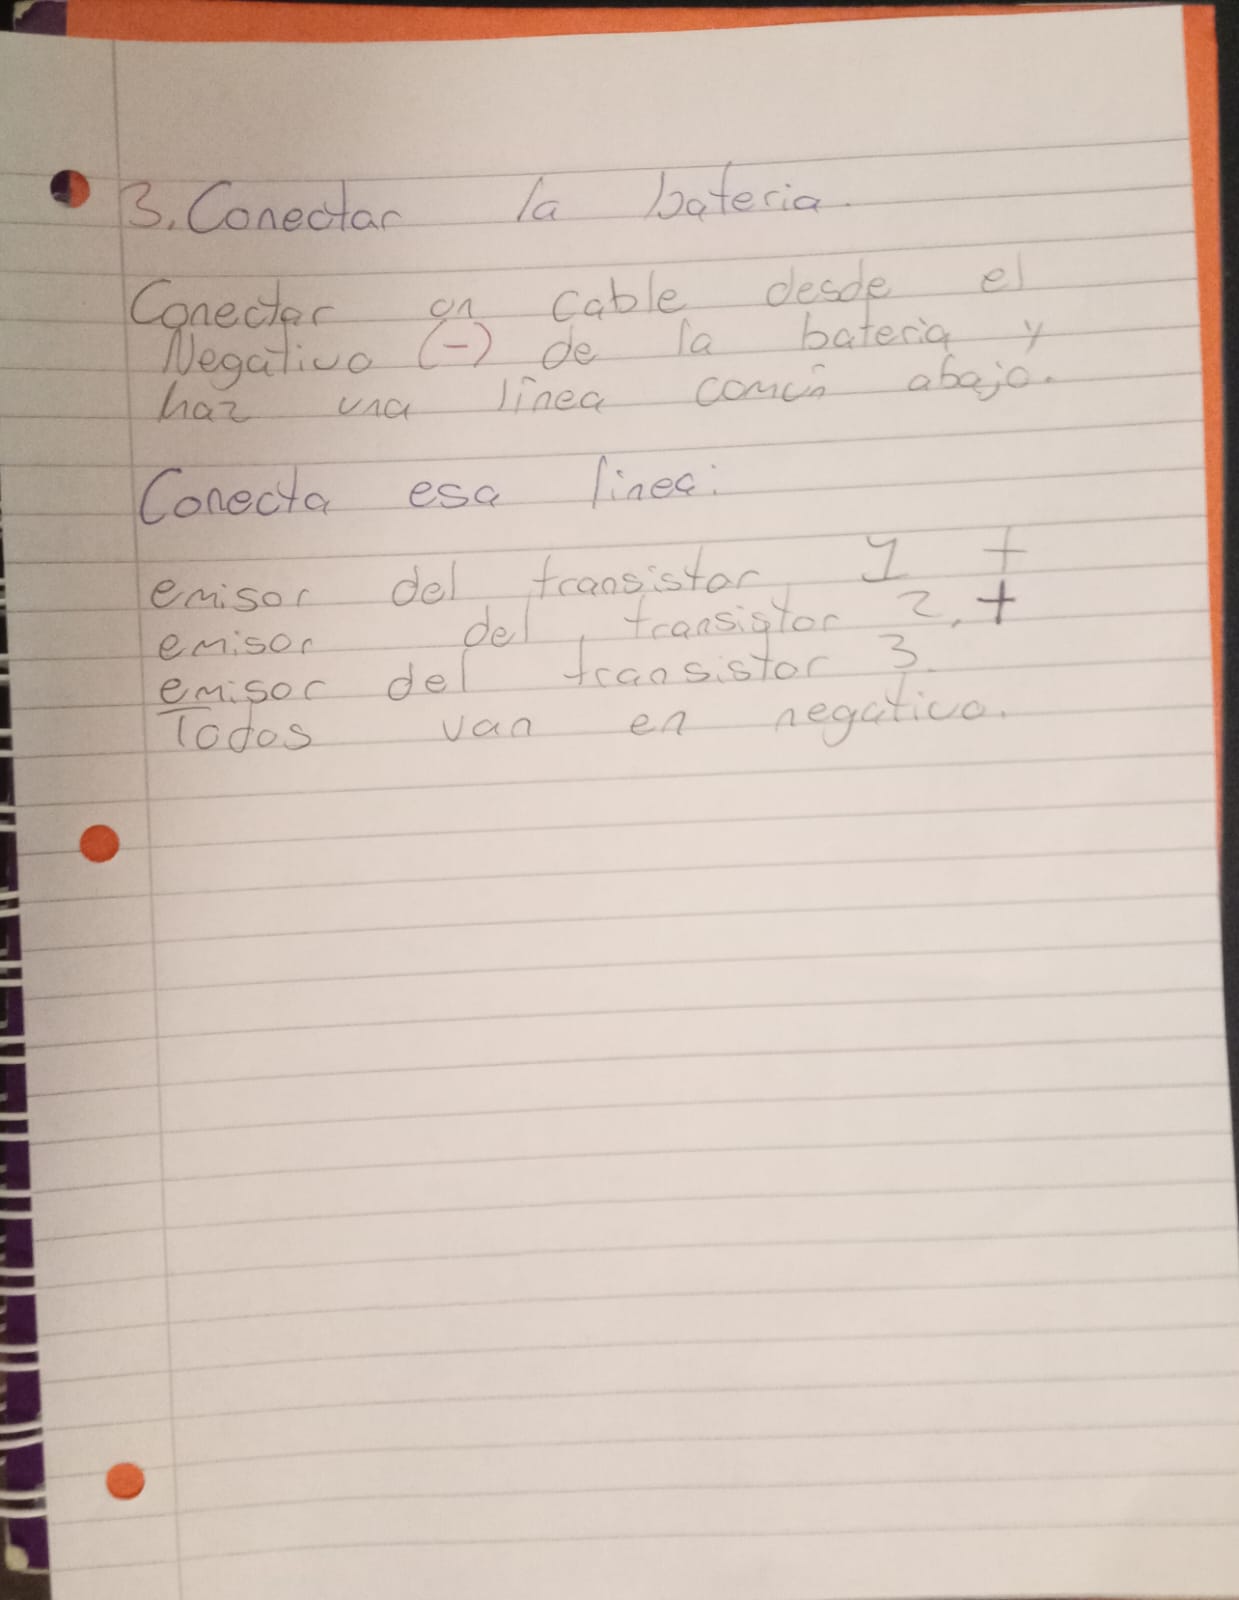 3. Conectar la bateria.
Conectar un cable desde el
Negativo (-) de la bateria y
haz una linea común abajo.
Conecta esa linea:
emisor del transistor 1 +
emisor del transistor 2. +
emisor del transistor 3.
Todos van en negativo.